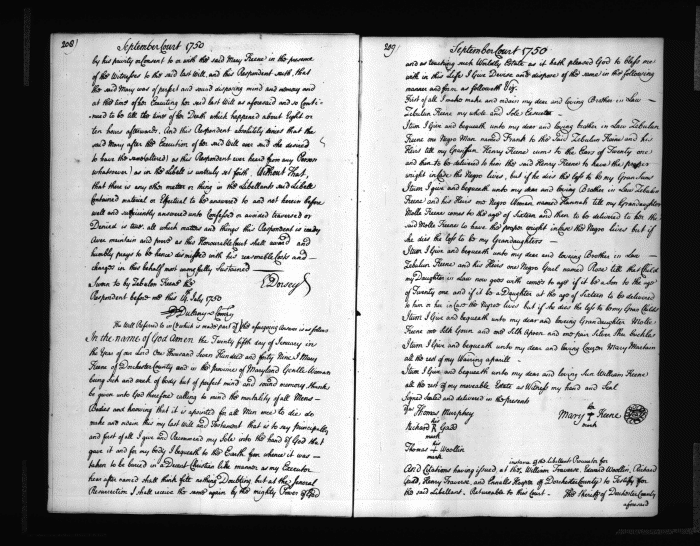 208)
September Court 1750
by his privity or Consent to or with the said Mary Keene in the presence
of the Witnesses to the said last Will, and this Respondent saith, that
the said Mary was of perfect and sound disposing mind and memory and
at the time of her Executing her said last Will as aforesaid and so Conti-
nued to be till the time of her Death which happened about Eight or
ten hours afterwards. And this Respondent absolutely denies that the
said Mary after the Execution of her said Will ever said she desired
to have the same altered as this Respondent ever heard from any Person
whatsoever as in the libell is untruly set forth, Without That,
that there is any other matter or thing in the libellants said libell
Contained material or Effectual to be answered to and not herein before
well and sufficiently answered unto Confessed or avoided traversed or
Denied is true all which matters and things this Respondent is ready
Aver maintain and prove as this Honourable Court shall award and
humbly prays to be hence dismissed with his reasonable Costs and
charges in this behalf most wrongfully Sustained
Sworn to by Zebulon Keene the
Respondent before me this 14th July 1750
Dorsey
The Will Referred to in (& which is made part of) the aforegoing Answer is as follows
In the name of God Amen the Twenty fifth day of January in
the Year of our Lord One Thousand Seven Hundred and forty Nine I Mary
Keene of Dorchester County and in the province of Maryland Gentle Woman
being Sick and weak of body but of perfect mind and sound memory thanks
be given unto God therefore calling to mind the mortality of all Mens
Bodies and knowing that it is apointed for all Men once to die do
make and ordain this my last Will and Testament that is to say principally
and first of all I give and Recommend my Soul into the hand of God that
gave it and for my body I bequeath to the Earth from whence it was
taken to be buried in a Decent Christian like manner as my Executor
hear after named shall think fitt nothing Doubting but at the General
Resurrection I shall receive the same again by the mighty Power of God
209
September Court 1750
and as touching such Worldly Estate as it hath pleased God to bless me
with in this Life I Give Devise and dispose of the same in the following
manner and form as followeth Viz.
First of all I make and ordain my dear and loving Brother in Law
Zebulon Keene my whole and Sole Executor
Item I Give and bequeath unto my dear and loving brother in Law Zebulon
Keene one Negro Man named Frank to the said Zebulon Keene and his
Heirs till my Grandson Henry Keene comes to the Ears of Twenty one
and then to be delivered to him the said Henry Keene to have the proper
wright in Case the Negro lives, but if he dies the loss to be my Grand Sons
Item I Give and bequeath unto my dear and loving Brother in Law Zebulon
Keene and his Heirs one Negro Woman named Hannah till my Grandaughter
Molle Keene comes to the age of Sixteen and then to be delivered to her the
said Molle Keene to have the proper wright in Case the Negro lives but if
she dies the loss to be my Grandaughters
Item I Give and bequeath unto my dear and loving Brother in Law
Zebulon Keene and his Heirs one Negro Gearl named Rose till that Child
my Daughter in Law now goes with comes to age if it be a Son to the age
of Twenty one and if it be a Daughter at the age of Sixteen to be delivered
to him or her in Case the Negro lives but if she dies the loss to be my Grand Childs
Item I Give and bequeath unto my dear and loving Grandaughter Molle
Keene one Silk Gown and one Silk Apron and one pair Silver Shoe buckles
Item I Give and bequeath unto my dear and loving Couzen Mary Martain
all the rest of my Wairing aparill
Item I Give and bequeath unto my dear and loving Son William Keene
all the rest of my moveable Estate as Witness my hand and Seal
Signed Sealed and delivered in the presents
Thomas Murphey
her
Mary Keene
mark
his
Richard R Gadd
mark
his
Thomas Woollin
mark
instance of the Libellant's Procurator for
And Citations having issued, at the, William Traverse, Edward Woollin, Richard
Gadd, Henry Traverse, and Ennalls Hooper of Dorchester County to Testify for
the said Libellant, Returnable to this Court. The Sheriff of Dorchester County
aforesaid